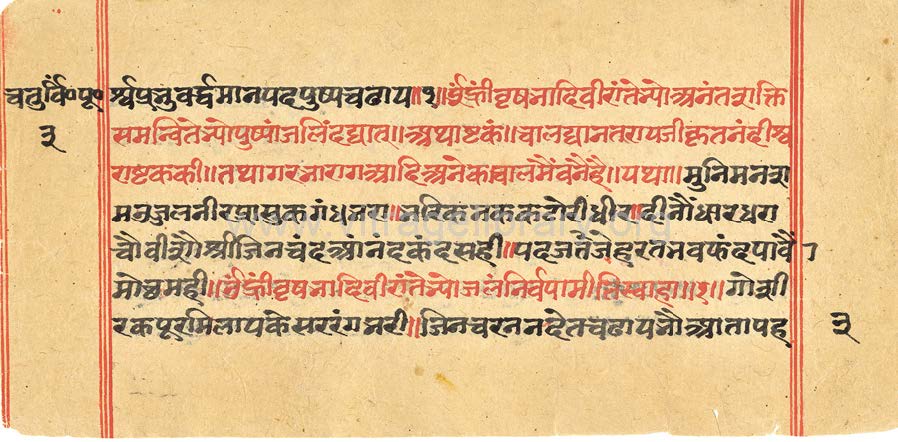 चतुर्विंº पूº
३
र्श्वप्रभुवर्द्धमानपदपुष्पचढाय॥१॥ॐह्रींवृषभादिवीरांतेभ्योअनंतशक्ति
समन्वितेभ्योपुष्पांजलिंदद्यात्॥अथाष्टकं॥चालद्यानतरायजीकृतनंदीश्व
राष्टककी॥तथागरभारागआदिअनेकचालमैंवनैहै॥यथा॥मुनिमनश
मनुजलनीरप्रासुकगंधभरा॥भरिकनककटोरीधीरदीनौंधारधरा
चौवीशौश्रीजिनचंदआनदकंदसही॥पदजजतजहरतभवफंदपावैं
मोछमही॥ॐह्रींवृषभादिवीरांतेभ्योजलंनिर्वपामीतिस्वाहा॥१॥गोशी
रकपूरमिलायकेसररंगभरी॥जिनचरननदेतचढायभौआतापह
३
www.viragelibrary.org